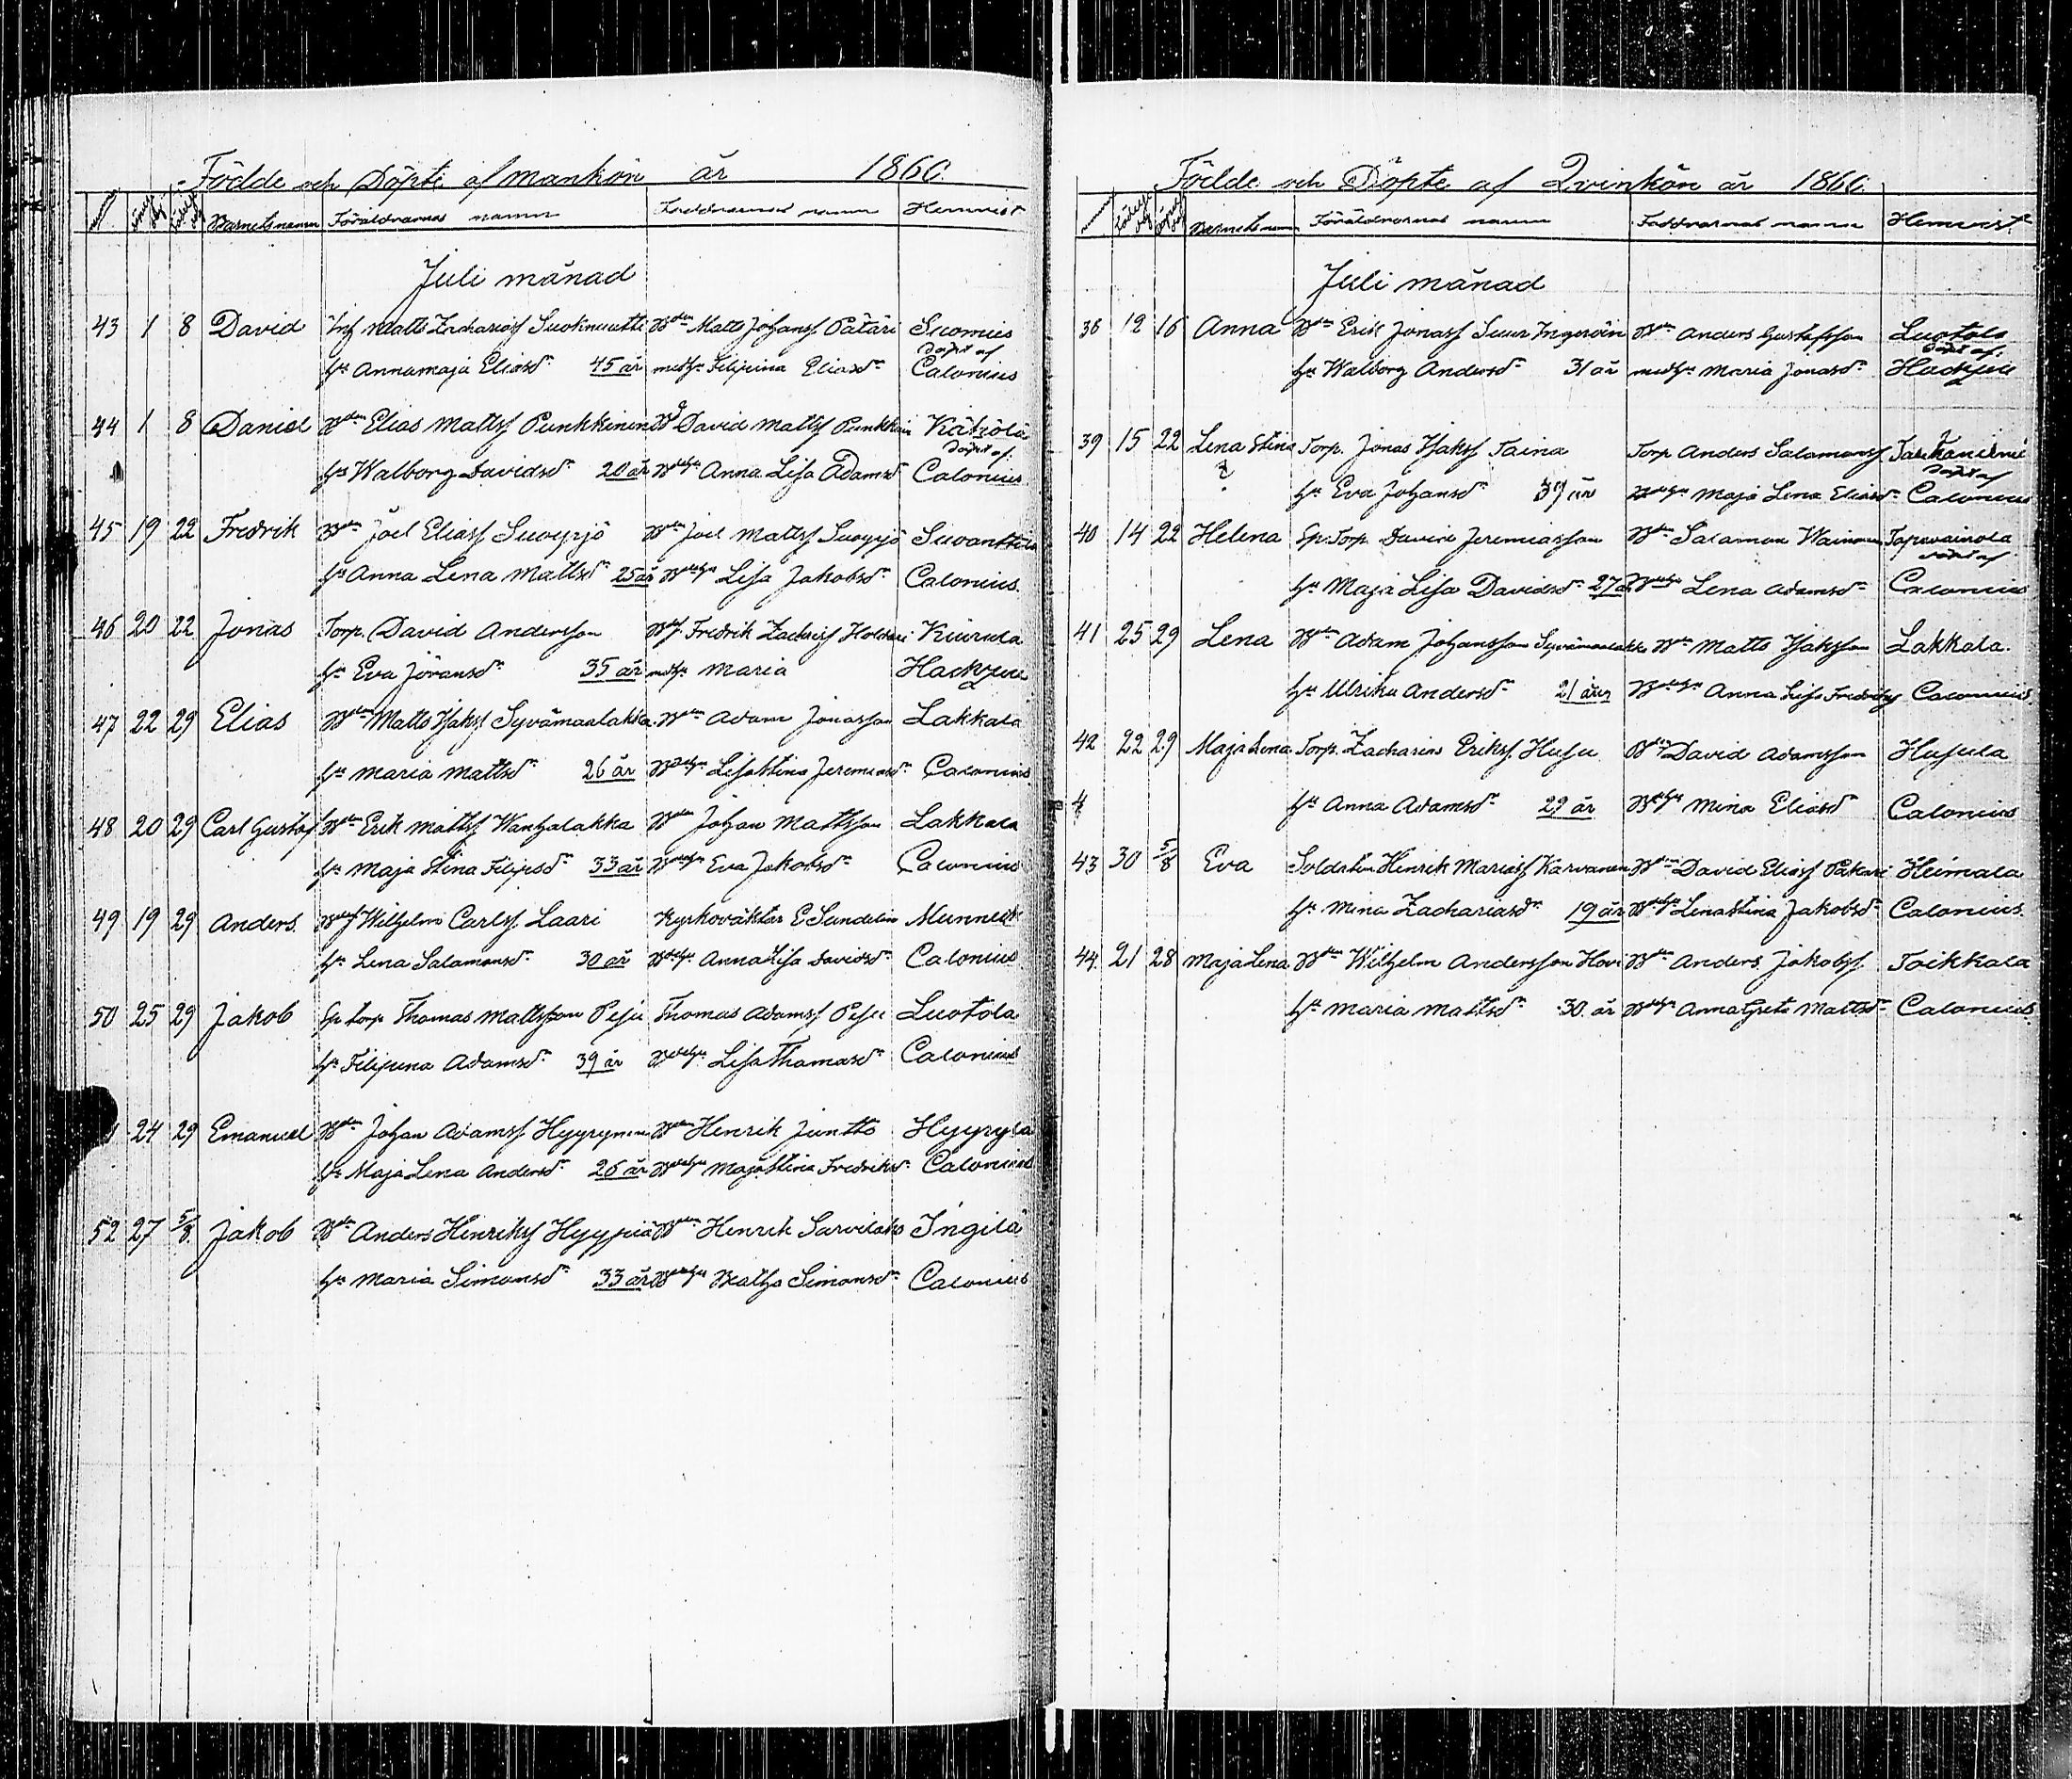 Födde och Döpte af mankön år 1866.
Barnets namn Föräldrarnas namn Faddrarnas namn Hemvist
Juli månad
43 1 8 David Inh Matts Zachariæf Suoknuutti Bden Matts Johansf Pätäri Suomies
döpt af
hu Annamaja Eliasdr 45 år med hu Filipina Eliasdr Calonius
44 1 8 Daniel Bden Elias Mattsf Punkkinen David Mattsf Punkkinen Kätkölä
döpt af
hu Walborg Davidsdr 20 år Anna Lisa Adamsdr Calonius
45 19 22 Fredrik Bden Joel Eliasf Suopyjö Bden Joel Mattsf Suopyjö Suvanttila
hu Anna Lena Mattsdr 25 år Lisa Jakobsdr Calonius.
46 20 22 Jonas Torp. David Andersson Fredrik Kiurula
hu Eva Jöransdr 35 år med hu Maria Hackzell
47 22 29 Elias Bden Matts Isaksf Syvämaalakka Bden Adam Jonasson Lakkala
hu Maria Mattsdr 26 år Lisa Stina Jeremiasdr Calonius
48 20 29 Carl Gustaf Bden Erik Mattsf Wanhalakka Bden Johan Mattsson Lakkala
hu Maja Stina Filipsdr 33 år Eva Jakobsdr Calonius
49 19 29 Anders. Wilhelm Carlsf. Laari Kyrkoväktar E Sundelin
hu Lena Salamonsdr 30 år Anna Lisa Davidsdr Calonius
50 25 29 Jakob Sp torp Thomas Mattsson Pesu Thomas Adamsf Pesu Luotola
hu Filipina Adamsdr 39 år Lisa Thomasdr Calonius
24 29 Emanuel Bden Johan Adamsf Hyyrynen Bden Henrik Juntto Hyyrylä
hu Maja Lena Andersdr 26 år Maja Stina Fredriksdr Calonius
52 27 5/8 Jakob Bden Anders Henriksf Hyypiä Bden Henrik Sarvilaks Ingilä
hu Maria Simonsdr 33 år Beatha Simonsdr Calonius
Födde och Döpte af Qvinkön år 1866.
Barnets namn Föräldrarnas namn Faddrarnas namn Hemvist.
Juli månad
38 12 16 Anna Bden Erik Jonasf Suur Ingeröin Bden Anders Gustafsson Luotola
döpt af.
hu Walborg Andersdr 31 år med hu Maria Jonasdr Hackzell
39 15 22 Lena Stina Torp. Jonas Isaksf Taina Torp Anders Salamonsf
döpt af
hu Eva Johansdr 37 år Maja Lena Eliasdr Calonius
40 14 22 Helena Sp. Torp David Jeremiasson Bden Salamon Wainonen Tapavainola
döpt af
hu Maja Lisa Davidsdr 27 år Lena Adamsdr Calonius
41 25 29 Lena Bden Adam Johansson Syvämaalakka Bden Matts Isaksson Lakkala.
hu Ulrika Andersdr 21 år Anna Lisa Calonius.
42 22 29 Maja Lena Torp. Zacharias Eriksf. Husu Bden David Adamsson Husula
4
hu Anna Adamsdr 29 år Mina Eliasdr Calonius
43 30 5/8 Eva Soldaten Henrik Mariasf Karvanen Bden David Eliasf Pätäri Heimala
hu Mina Zachariasdr 19 år Lena Stina Jakobsdr Calonius.
44 21 28 Maja Lena Bden Wilhelm Andersson Hovi Bden Anders Jakobsf. Toikkala
hu Maria Mattsdr 30 år Anna Greta Mattsdr Calonius.